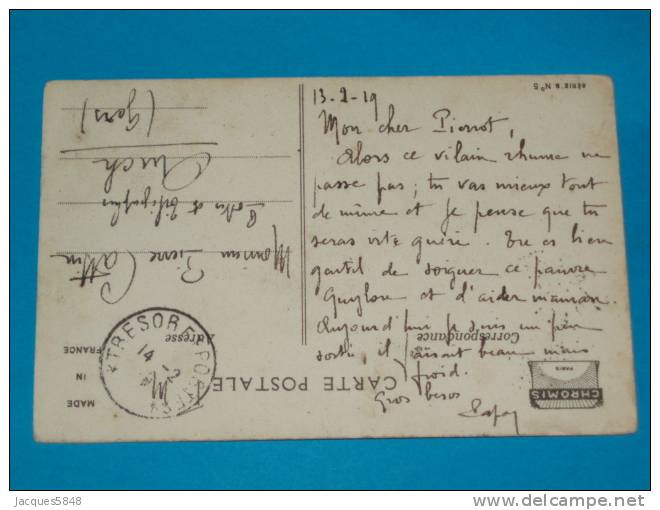 13-2-19
Mon cher Pierrot,
Alors ce vilain rhume ne
passe pas; tu vas mieux tout
de même et je pense que tu
seras vite guéri. Tu es bien
gentil de soigner ce pauvre
et d'aider maman.
Aujourd'hui je suis un peu
sorti, il faisait beau mais
froid.
Gros besos
Papa
Monsieur Pierre
Postes et Télégraphes
Auch
(Gers)
CARTE POSTALE
Correspondance
Adresse
MADE
IN
FRANCE
SÉRIE & Nº5
CHROMIS
PARIS
TRESOR ET POSTES
14
2
Jacques5848
delcampe.net